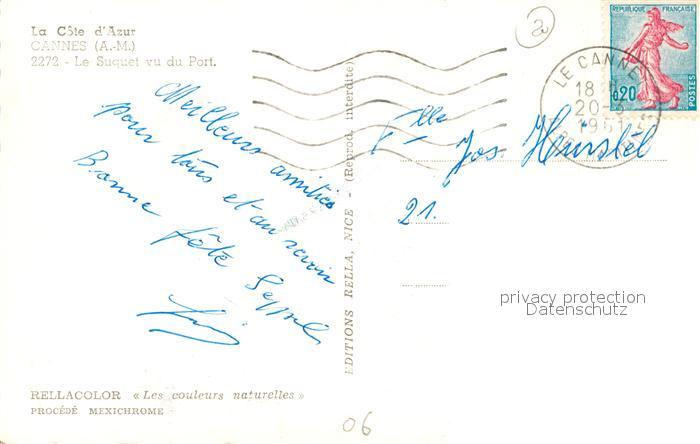 La Côte d'Azur
CANNES (A.-M.)
2272 - Le Suquet vu du Port.
Meilleurs amitiés
pour tous et au revoir
Bonne fête Seppele
EDITIONS RELLA, NICE - (Reprod. interdite)
RELLACOLOR « Les couleurs naturelles »
PROCÉDÉ MEXICHROME
20
REPUBLIQUE FRANÇAISE
0,20
POSTES
LE CANNET
18
20
196
Flle Jos. Hürstel
21.
privacy protection
Datenschutz
06